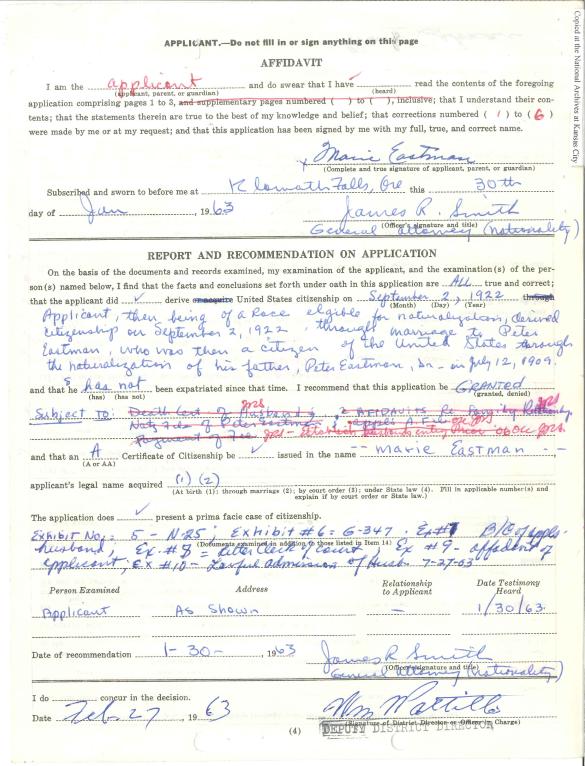 APPLICANT.—Do not fill in or sign anything on this page
AFFIDAVIT
I am the applicant and do swear that I have read the contents of the foregoing
(applicant, parent, or guardian) (heard)
application comprising pages 1 to 3, and supplementary pages numbered ( ) to ( ), inclusive; that I understand their con-
tents; that the statements therein are true to the best of my knowledge and belief; that corrections numbered ( 1 ) to ( 6 )
were made by me or at my request; and that this application has been signed by me with my full, true, and correct name.
x Marie Eastman
(Complete and true signature of applicant, parent, or guardian)
Subscribed and sworn to before me at Klamath Falls, Ore this 30th
day of Jan, 1963 James R. Smith
(Officer's signature and title)
General attorney (nationality)
REPORT AND RECOMMENDATION ON APPLICATION
On the basis of the documents and records examined, my examination of the applicant, and the examination(s) of the per-
son(s) named below, I find that the facts and conclusions set forth under oath in this application are ALL true and correct;
that the applicant did ✓ derive or acquire United States citizenship on September 2, 1922 through
(Month) (Day) (Year)
Applicant, then being of a Race eligible for naturalization, derived
citizenship on September 2, 1922, through marriage to Peter
Eastman, who was then a citizen of the United States through
the naturalization of his father, Peter Eastman, on July 12, 1909.
and that s he has not been expatriated since that time. I recommend that this application be GRANTED
(has) (has not) (granted, denied)
Subject to: Death Cert of Husband JRS 2 AFFIDAVITS Re
Natz JRS
Payment of Fee JRS - Establish JRS
and that an A Certificate of Citizenship be ✓ issued in the name -- Marie Eastman --
(A or AA)
applicant's legal name acquired (1) (2)
(At birth (1); through marriage (2); by court order (3); under State law (4). Fill in applicable number(s) and
explain if by court order or State law.)
The application does ✓ present a prima facie case of citizenship.
Exhibit No: 5 - N-25; Exhibit #6 = G-347. Ex #7 B/C of appls.
(Documents examined in addition to those listed in Item 14)
husband, Ex. #8 = letter Clerk of Court, Ex #9 - affidavit of
applicant, Ex #10 - Lawful admission of Husb. 7-27-03
Person Examined Address Relationship to Applicant Date Testimony Heard
Applicant As Shown — 1/30/63
Date of recommendation 1-30-, 1963 James R Smith
(Officer's signature and title)
General attorney (nationality)
I do concur in the decision.
Date Feb. 27, 1963 Wm Pattillo
(Signature of District Director or Officer in Charge)
DEPUTY DISTRICT DIRECTOR
(4)
Copied at the National Archives at Kansas City